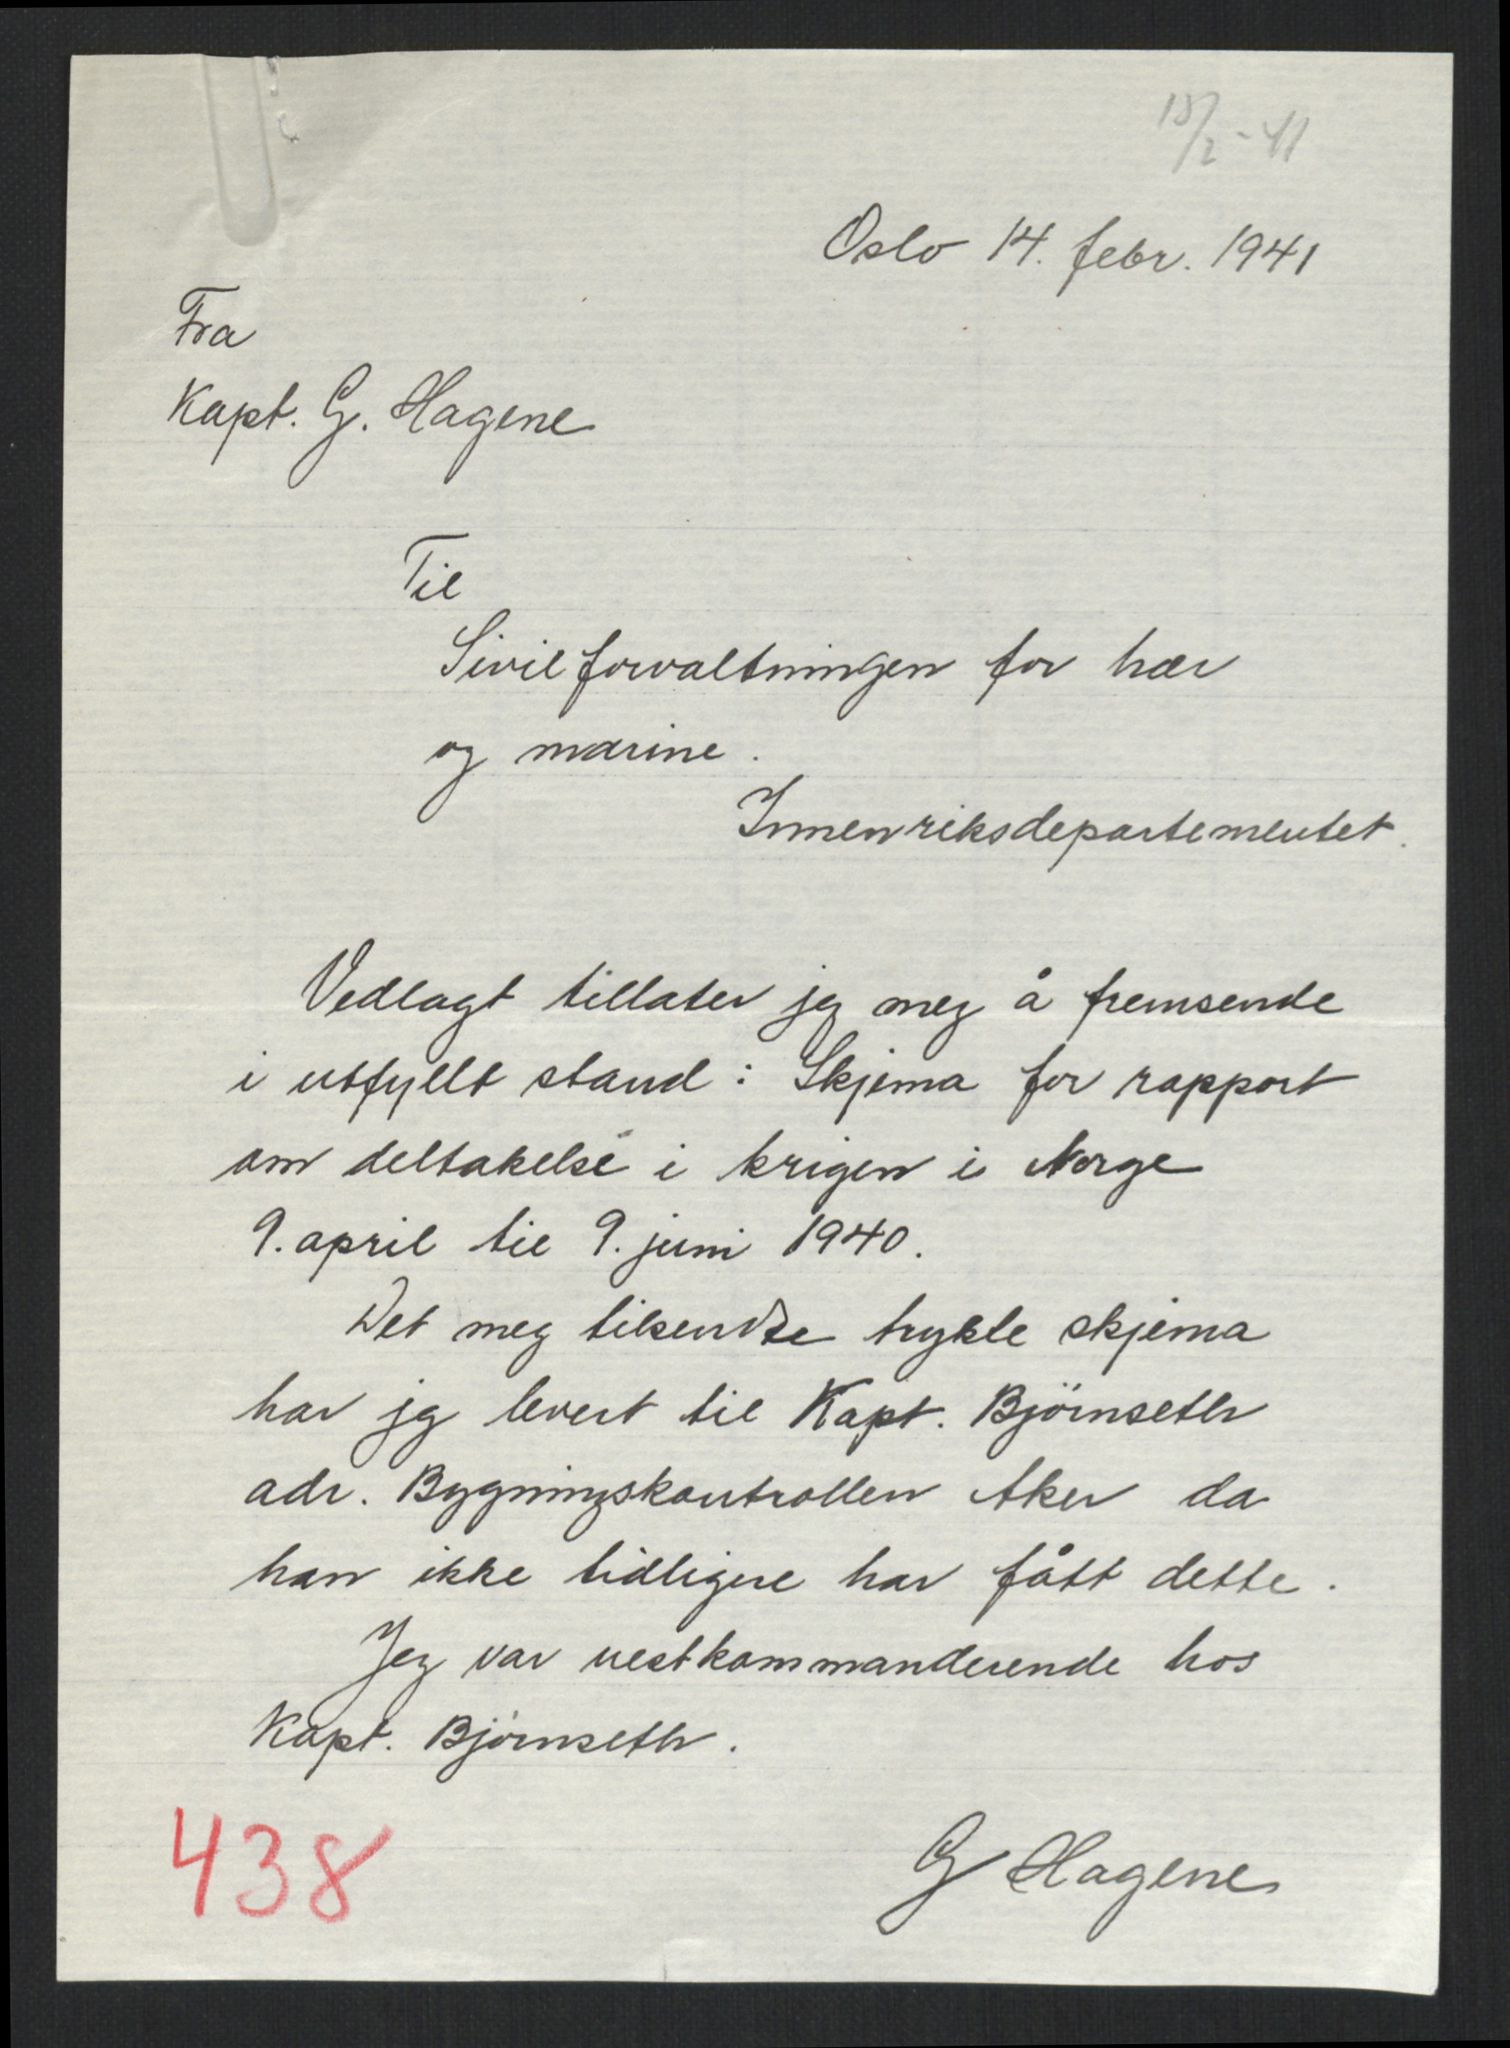 18/2-41
Oslo 14. febr. 1941
Fra
Kapt. G. Hagene
Til
Sivilforvaltningen for hær
og marine.
Innenriksdepartementet.
Vedlagt tillater jeg meg å fremsende
i utfyllt stand: Skjema for rapport
om deltakelse i krigen i Norge
9. april til 9. juni 1940.
Det meg tilsendte trykte skjema
har jg levert til Kapt. Björnseth
adr. Bygningskontrollen Aker da
han ikke tidligere har fått dette.
Jeg var nestkommanderende hos
Kapt. Björnseth.
G Hagene
438